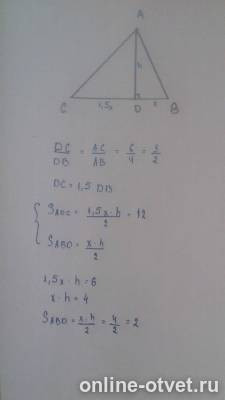 A
h
C 1,5x D x B
DC/DB = AC/AB = 6/4 = 3/2
DC = 1,5 DB
{ S_ADC = 1,5x · h / 2 = 12
S_ABD = x · h / 2
1,5x · h = 6
x · h = 4
S_ABD = x · h / 2 = 4/2 = 2
online-otvet.ru